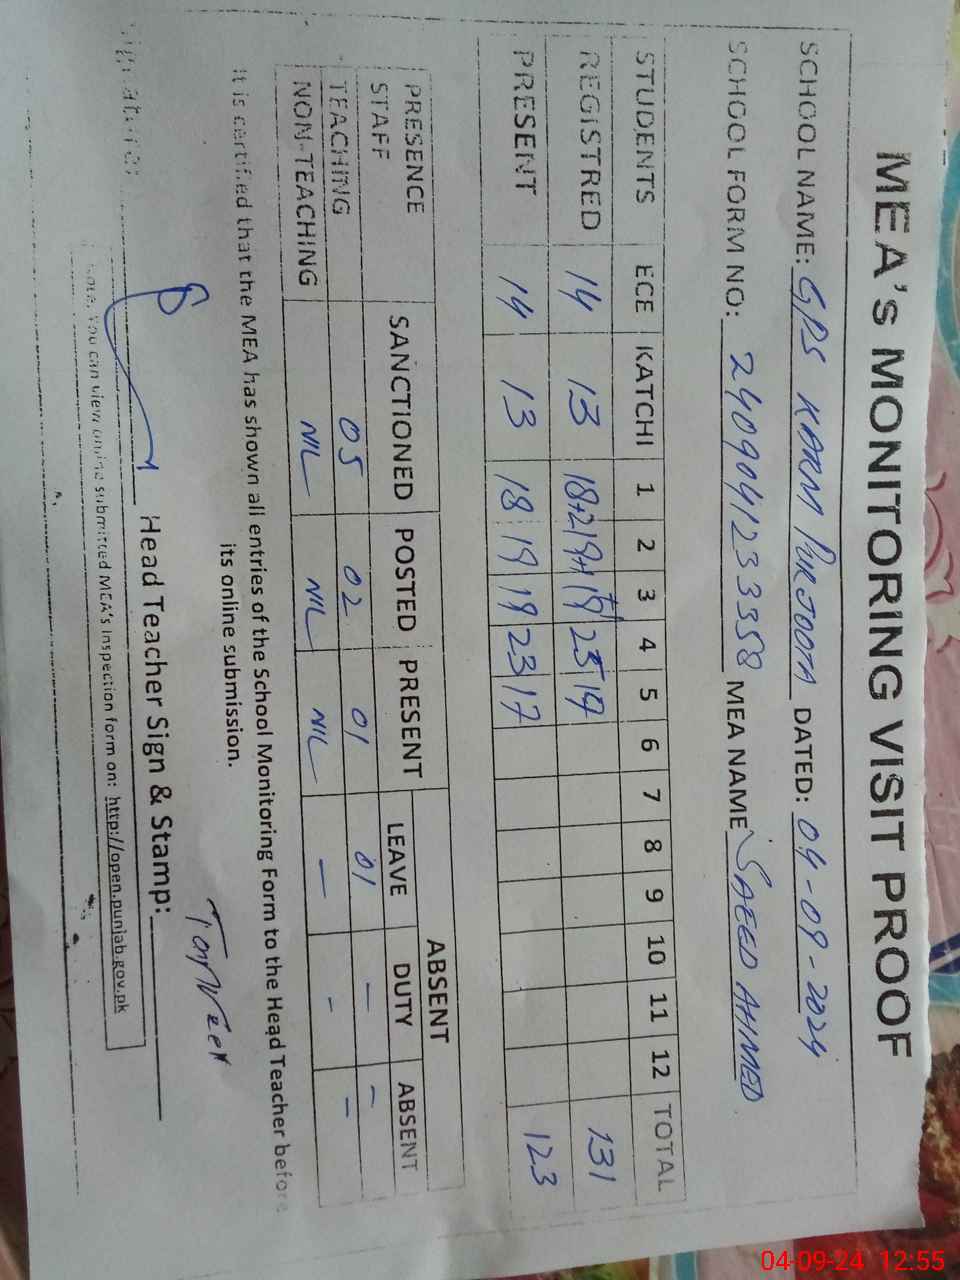 MEA's MONITORING VISIT PROOF
SCHOOL NAME: GPS KARM PUR JOOTA DATED: 04-09-2024
SCHOOL FORM NO: 2409041233358 MEA NAME SAEED AHMED
STUDENTS ECE KATCHI 1 2 3 4 5 6 7 8 9 10 11 12 TOTAL
REGISTRED 14 13 18+2 19+1 19 23 19 131
PRESENT 14 13 18 19 19 23 17 123
PRESENCE SANCTIONED POSTED PRESENT ABSENT
STAFF LEAVE DUTY ABSENT
TEACHING 05 02 01 01 - -
NON-TEACHING NIL NIL NIL - - -
It is certified that the MEA has shown all entries of the School Monitoring Form to the Head Teacher before
its online submission.
Tanveer
Signature: Head Teacher Sign & Stamp:
Note. You can view online submitted MEA's inspection form on: http://open.punjab.gov.pk
04-09-24 12:55